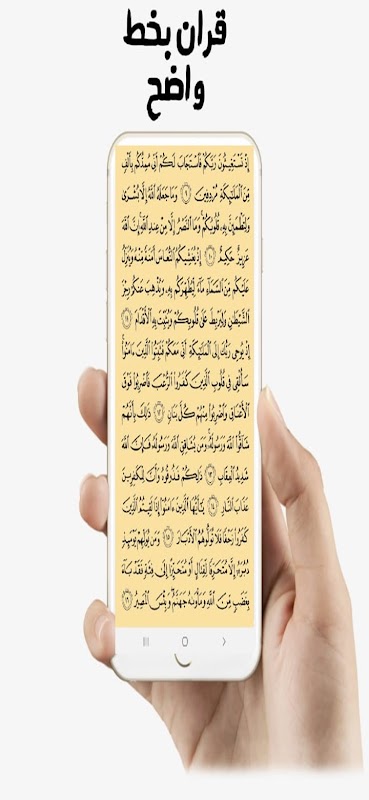 قران بخط
واضح
إِذْ تَسْتَغِيثُونَ رَبَّكُمْ فَاسْتَجَابَ لَكُمْ أَنِّي مُمِدُّكُم بِأَلْفٍ
مِّنَ الْمَلَائِكَةِ مُرْدِفِينَ ٩ وَمَا جَعَلَهُ اللَّهُ إِلَّا بُشْرَى
وَلِتَطْمَئِنَّ بِهِ قُلُوبُكُمْ وَمَا النَّصْرُ إِلَّا مِنْ عِندِ اللَّهِ إِنَّ اللَّهَ
عَزِيزٌ حَكِيمٌ ١٠ إِذْ يُغَشِّيكُمُ النُّعَاسَ أَمَنَةً مِّنْهُ وَيُنَزِّلُ
عَلَيْكُم مِّنَ السَّمَاءِ مَاءً لِّيُطَهِّرَكُم بِهِ وَيُذْهِبَ عَنكُمْ رِجْزَ
الشَّيْطَانِ وَلِيَرْبِطَ عَلَى قُلُوبِكُمْ وَيُثَبِّتَ بِهِ الْأَقْدَامَ ١١
إِذْ يُوحِي رَبُّكَ إِلَى الْمَلَائِكَةِ أَنِّي مَعَكُمْ فَثَبِّتُوا الَّذِينَ ءَامَنُوا
سَأُلْقِي فِي قُلُوبِ الَّذِينَ كَفَرُوا الرُّعْبَ فَاضْرِبُوا فَوْقَ
الْأَعْنَاقِ وَاضْرِبُوا مِنْهُمْ كُلَّ بَنَانٍ ١٢ ذَلِكَ بِأَنَّهُمْ
شَاقُّوا اللَّهَ وَرَسُولَهُ وَمَن يُشَاقِقِ اللَّهَ وَرَسُولَهُ فَإِنَّ اللَّهَ
شَدِيدُ الْعِقَابِ ١٣ ذَلِكُمْ فَذُوقُوهُ وَأَنَّ لِلْكَافِرِينَ
عَذَابَ النَّارِ ١٤ يَاأَيُّهَا الَّذِينَ ءَامَنُوا إِذَا لَقِيتُمُ الَّذِينَ
كَفَرُوا زَحْفًا فَلَا تُوَلُّوهُمُ الْأَدْبَارَ ١٥ وَمَن يُوَلِّهِمْ يَوْمَئِذٍ
دُبُرَهُ إِلَّا مُتَحَرِّفًا لِّقِتَالٍ أَوْ مُتَحَيِّزًا إِلَى فِئَةٍ فَقَدْ بَاءَ
بِغَضَبٍ مِّنَ اللَّهِ وَمَأْوَاهُ جَهَنَّمُ وَبِئْسَ الْمَصِيرُ ١٦